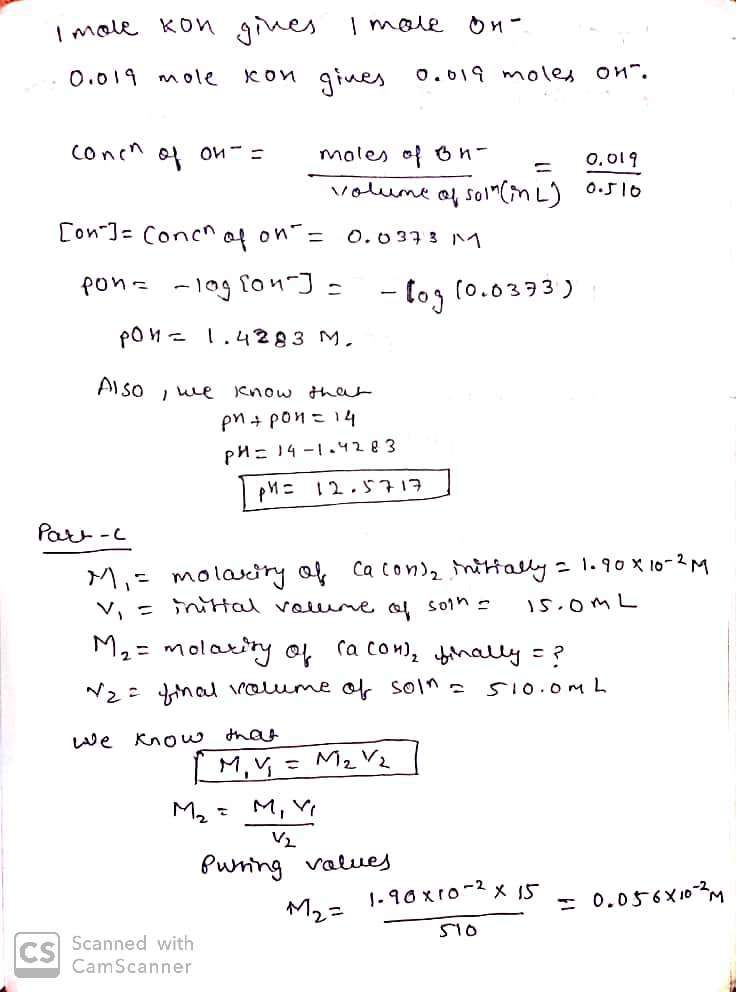 1 mole KOH gives 1 mole OH-
0.019 mole KOH gives 0.019 moles OH-.
Concn of OH- = moles of OH- / volume of soln (in L) = 0.019 / 0.510
[OH-] = Concn of OH- = 0.0373 M
pOH = -log [OH-] = -log (0.0373)
pOH = 1.4283 M.
Also, we know that
pH + pOH = 14
pH = 14 - 1.4283
pH = 12.5717
Part-C
M1 = molarity of Ca(OH)2 initially = 1.90 x 10-2 M
V1 = initial volume of soln = 15.0 mL
M2 = molarity of Ca(OH)2 finally = ?
V2 = final volume of soln = 510.0 mL
we know that
M1V1 = M2V2
M2 = M1V1 / V2
Putting values
M2 = 1.90 x 10-2 x 15 / 510 = 0.056 x 10-2 M
CS Scanned with
CamScanner